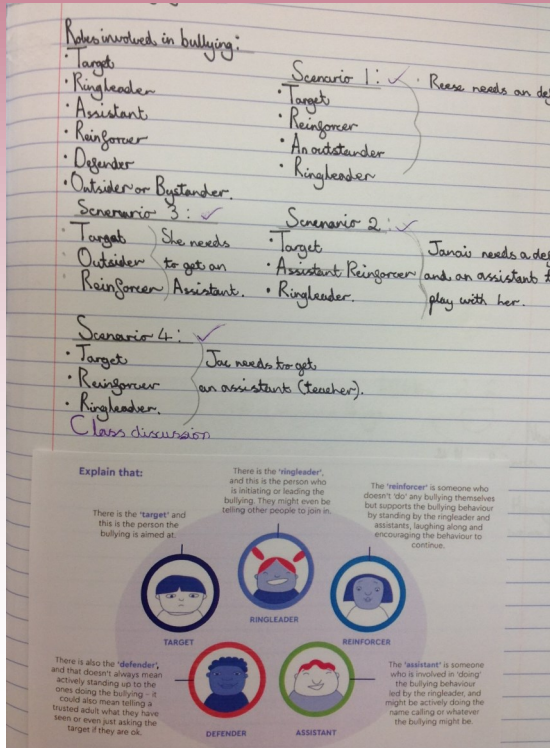 Roles involved in bullying:
• Target
• Ringleader
• Assistant
• Reinforcer
• Defender
• Outsider or Bystander.
Scenario 1: ✓
• Target
• Reinforcer
• An outstander
• Ringleader
• Reese needs an def
Scnerario 3: ✓
• Target
• Outsider
• Reinforcer
She needs
to get an
Assistant.
Scnenario 2: ✓
• Target
• Assistant Reinforcer
• Ringleader.
Janai needs a def
and an assistant t
play with her.
Scenario 4: ✓
• Target
• Reinforcer
• Ringleader.
Jac needs to get
an assistant (teacher).
Class discussion
Explain that:
There is the 'target' and
this is the person the
bullying is aimed at.
There is the 'ringleader',
and this is the person who
is initiating or leading the
bullying. They might even be
telling other people to join in.
The 'reinforcer' is someone who
doesn't 'do' any bullying themselves
but supports the bullying behaviour
by standing by the ringleader and
assistants, laughing along and
encouraging the behaviour to
continue.
TARGET
RINGLEADER
REINFORCER
There is also the 'defender',
and that doesn't always mean
actively standing up to the
ones doing the bullying – it
could also mean telling a
trusted adult what they have
seen or even just asking the
target if they are ok.
DEFENDER
ASSISTANT
The 'assistant' is someone
who is involved in 'doing'
the bullying behaviour
led by the ringleader, and
might be actively doing the
name calling or whatever
the bullying might be.